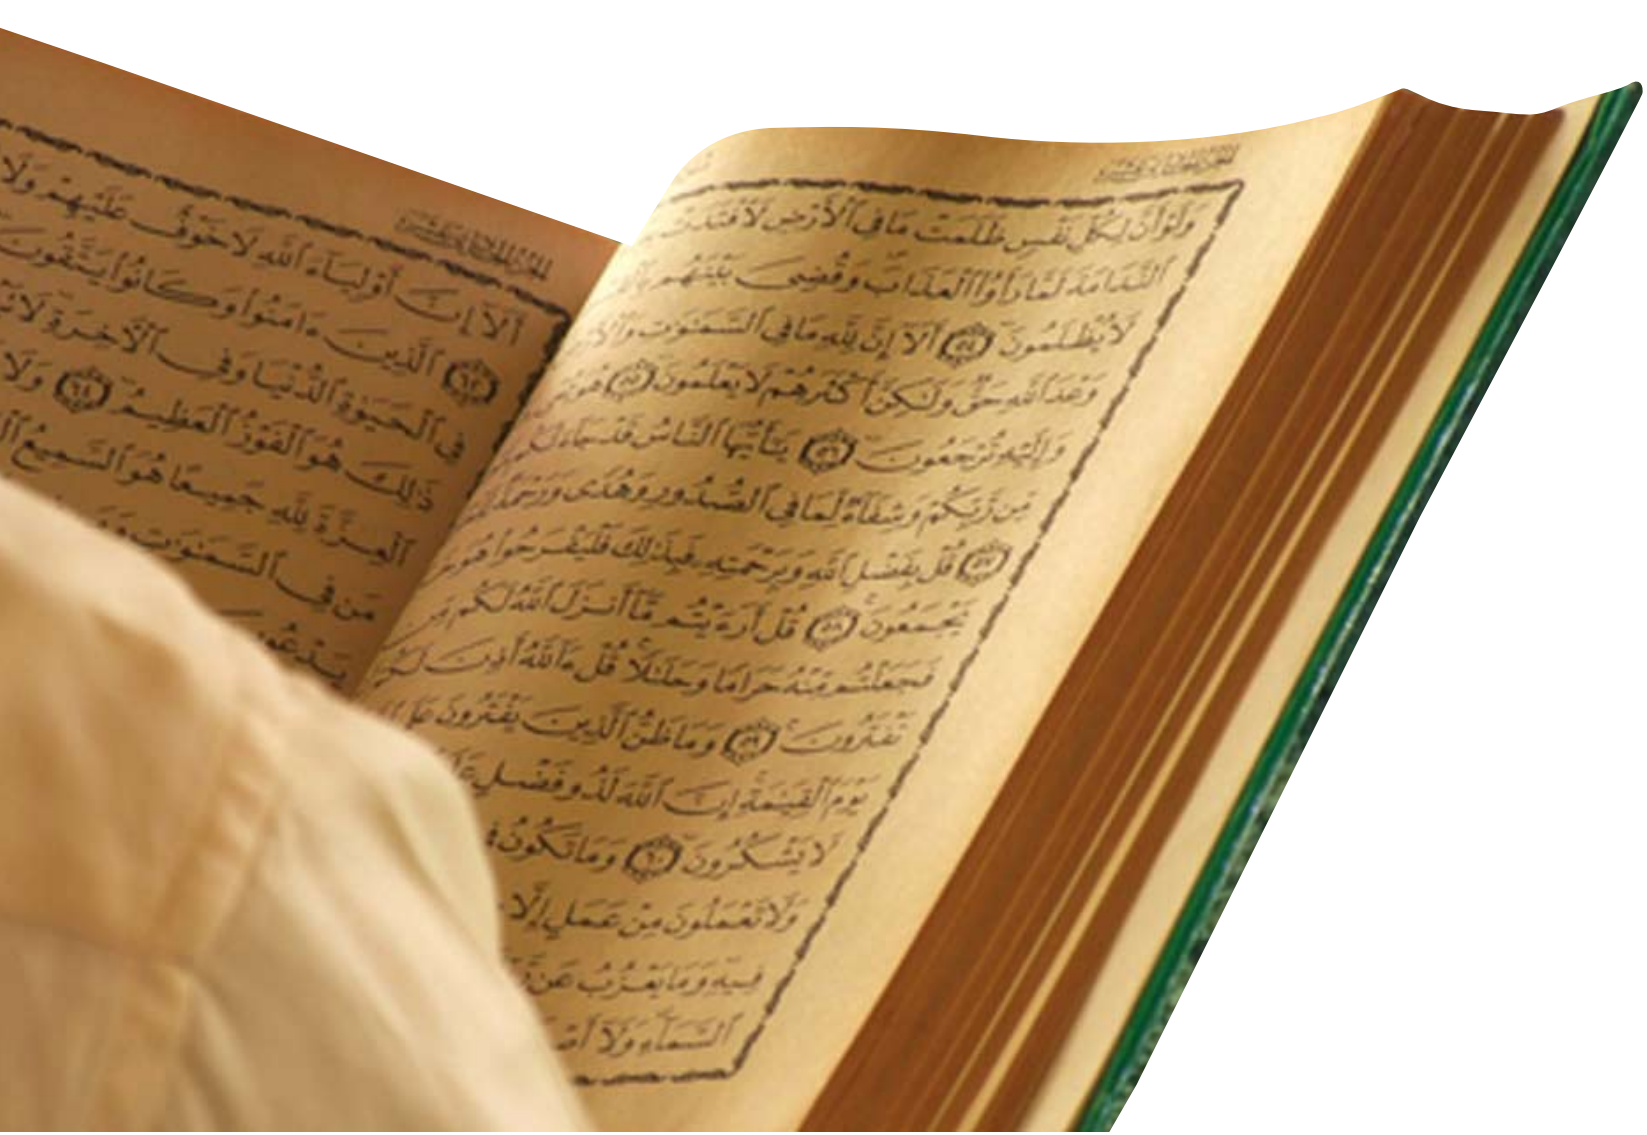 وَلَوْ أَنَّ لِكُلِّ نَفْسٍ ظَلَمَتْ مَا فِي ٱلْأَرْضِ لَٱفْتَدَتْ
ٱلنَّدَامَةَ لَمَّا رَأَوُا۟ ٱلْعَذَابَ وَقُضِيَ بَيْنَهُم
لَا يُظْلَمُونَ ٥٤ أَلَآ إِنَّ لِلَّهِ مَا فِي ٱلسَّمَٰوَٰتِ
وَعْدَ ٱللَّهِ حَقٌّ وَلَٰكِنَّ أَكْثَرَهُمْ لَا يَعْلَمُونَ ٥٥ هُوَ
وَإِلَيْهِ تُرْجَعُونَ ٥٦ يَٰٓأَيُّهَا ٱلنَّاسُ قَدْ جَآءَتْكُم
مِّن رَّبِّكُمْ وَشِفَآءٌ لِّمَا فِي ٱلصُّدُورِ وَهُدًى وَرَحْمَةٌ
٥٧ قُلْ بِفَضْلِ ٱللَّهِ وَبِرَحْمَتِهِۦ فَبِذَٰلِكَ فَلْيَفْرَحُوا۟ هُوَ
يَجْمَعُونَ ٥٨ قُلْ أَرَءَيْتُم مَّآ أَنزَلَ ٱللَّهُ لَكُم مِّن
فَجَعَلْتُم مِّنْهُ حَرَامًا وَحَلَٰلًا قُلْ ءَآللَّهُ أَذِنَ لَكُمْ
تَفْتَرُونَ ٥٩ وَمَا ظَنُّ ٱلَّذِينَ يَفْتَرُونَ عَلَى
يَوْمَ ٱلْقِيَٰمَةِ إِنَّ ٱللَّهَ لَذُو فَضْلٍ
لَا يَشْكُرُونَ ٦٠ وَمَا تَكُونُ
وَلَا تَعْمَلُونَ مِنْ عَمَلٍ إِلَّا
فِيهِ وَمَا يَعْزُبُ عَن
ٱلسَّمَآءِ وَلَآ
أَلَآ إِنَّ أَوْلِيَآءَ ٱللَّهِ لَا خَوْفٌ عَلَيْهِمْ وَلَا
٦٢ ٱلَّذِينَ ءَامَنُوا۟ وَكَانُوا۟ يَتَّقُونَ
فِي ٱلْحَيَوٰةِ ٱلدُّنْيَا وَفِي ٱلْءَاخِرَةِ لَا
ذَٰلِكَ هُوَ ٱلْفَوْزُ ٱلْعَظِيمُ ٦٤ وَلَا
ٱلْعِزَّةَ لِلَّهِ جَمِيعًا هُوَ ٱلسَّمِيعُ
مَن فِي ٱلسَّمَٰوَٰتِ
يَدْعُونَ